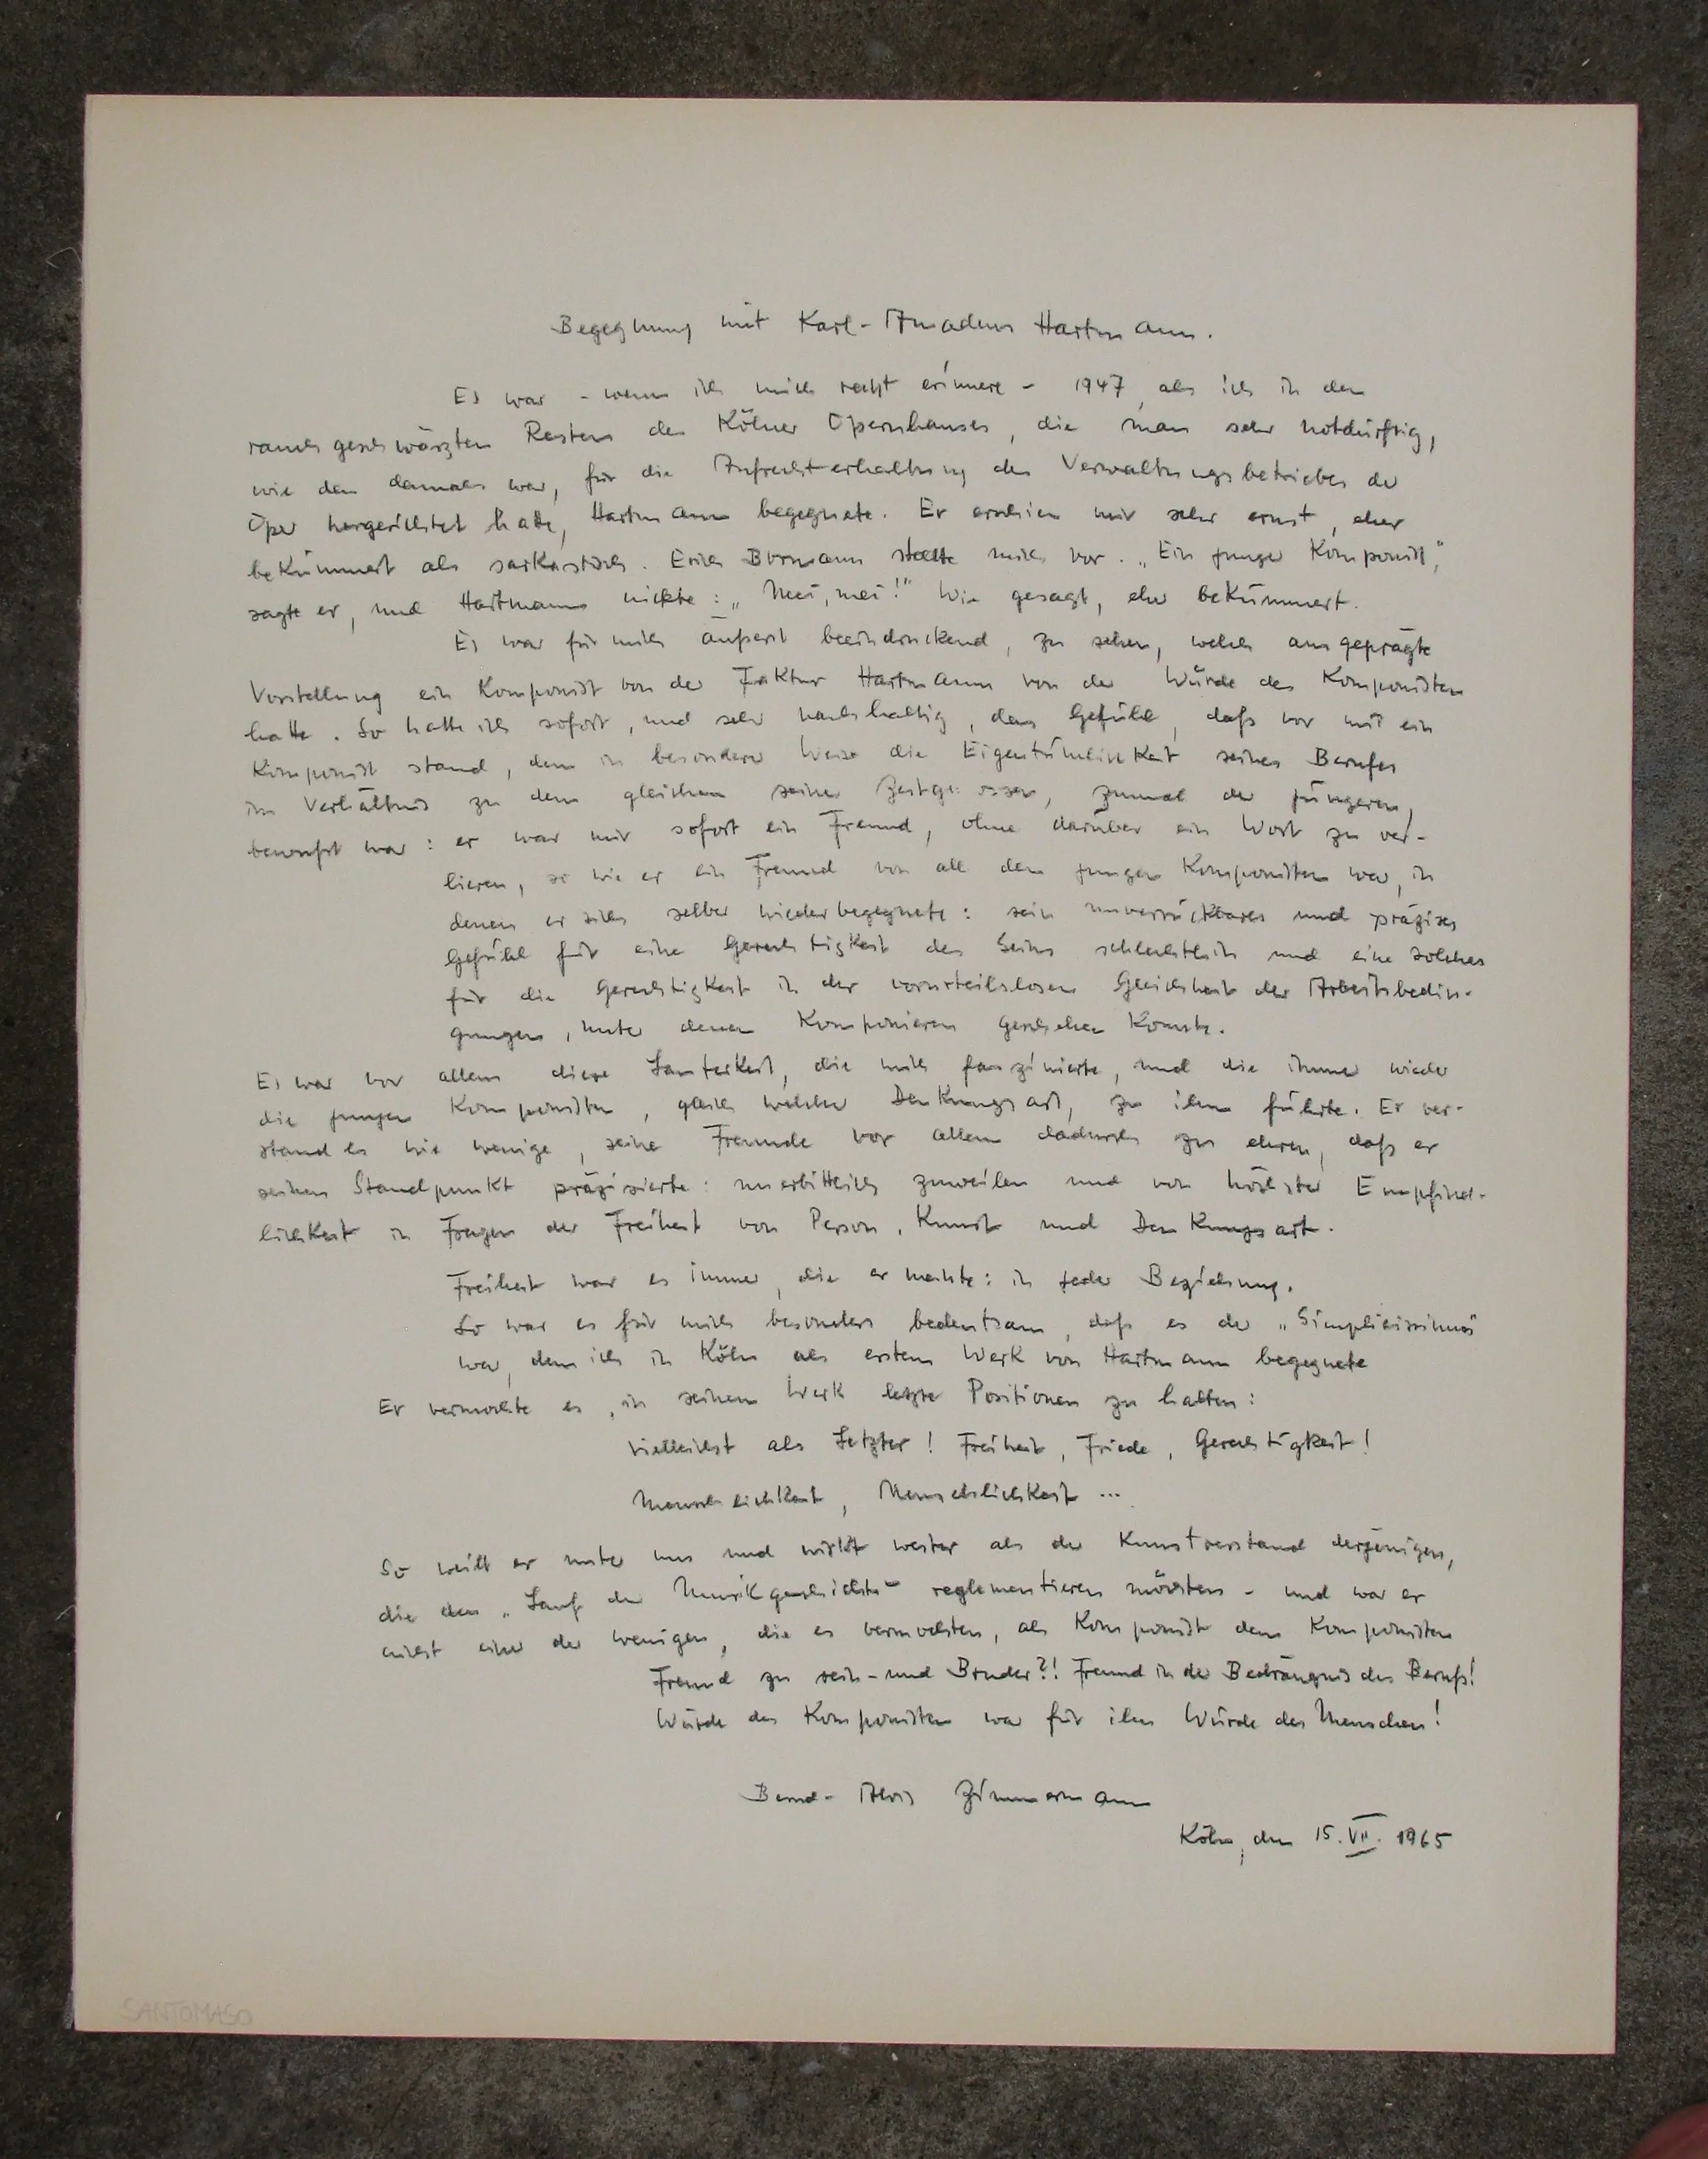 Begegnung mit Karl-Amadeus Hartmann.
Es war - wenn ich mich recht erinnere - 1947, als ich in den
rauchgeschwärzten Resten des Kölner Opernhauses, die man sehr notdürftig,
wie das damals war, für die Aufrechterhaltung des Verwaltungsbetriebes der
Oper hergerichtet hatte, Hartmann begegnete. Er erschien mir sehr ernst, eher
bekümmert als sarkastisch. Erich Bormann stellte mich vor. „Ein junger Komponist",
sagte er, und Hartmann nickte: „Mei, mei!" Wie gesagt, eher bekümmert.
Es war für mich äußerst beeindruckend, zu sehen, welch ausgeprägte
Vorstellung ein Komponist von der Faktur Hartmanns von der Würde des Komponisten
hatte. So hatte ich sofort, und sehr nachhaltig, das Gefühl, daß vor mir ein
Komponist stand, dem in besonderer Weise die Eigentümlichkeit seines Berufes
im Verhältnis zu dem gleichen seiner Zeitgenossen, zumal der jüngeren,
bewußt war: er war mir sofort ein Freund, ohne darüber ein Wort zu ver-
lieren, so wie er ein Freund von all den jungen Komponisten war, in
denen er sich selber wiederbegegnete: sein unverrückbares und präzises
Gefühl für eine Gerechtigkeit des Seins schlechthin und ein solches
für die Gerechtigkeit in der vorurteilslosen Gleichheit der Arbeitsbedin-
gungen, unter denen Komponieren geschehen konnte.
Es war vor allem diese Lauterkeit, die mich faszinierte, und die immer wieder
die jungen Komponisten, gleich welcher Denkungsart, zu ihm führte. Er ver-
stand es wie wenige, seine Freunde vor allem dadurch zu ehren, daß er
seinen Standpunkt präzisierte: unerbittlich zuweilen und von höchster Empfind-
lichkeit in Fragen der Freiheit von Person, Kunst und Denkungsart.
Freiheit war es immer, die er meinte: in jeder Beziehung.
So war es für mich besonders bedeutsam, daß es der „Simplicissimus"
war, dem ich in Köln als erstem Werk von Hartmann begegnete
Er vermochte es, in seinem Werk letzte Positionen zu halten:
vielleicht als Letzter! Freiheit, Friede, Gerechtigkeit!
Menschlichkeit, Menschlichkeit ...
So weilt er unter uns und wirkt weiter als der Kunstverstand derjenigen,
die den „Lauf der Musikgeschichte" reglementieren möchten - und war er
nicht einer der wenigen, die es vermochten, als Komponist dem Komponisten
Freund zu sein - und Bruder?! Freund in der Bedrängnis des Berufs!
Würde des Komponisten war für ihn Würde des Menschen!
Bernd-Alois Zimmermann
Köln, den 15. VII. 1965
SANTOMASO